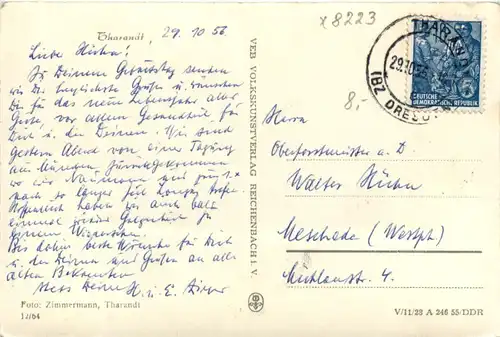 x 8223
Tharandt, 29.10.56
Liebe Hühn!
Zu Deinem Geburtstag senden
wir Dir herzlichste Grüße u. wünschen
Dir für das neue Lebensjahr alles
Gute, vor allem Gesundheit für
Dich u. die Deinen. Wir sind
gestern Abend von einer Tagung
aus München zurückgekommen
wo wir Naumann und
nach so langer Zeit
Hoffentlich haben wir auch bald
einmal wieder Gelegenheit zu
einem Wiedersehen.
Bis dahin beste Wünsche für Dich
u. die Deinen und Grüße an alle
alten Bekannten
stets Deine H. u. E.
Foto: Zimmermann, Tharandt
17/64
VEB VOLKSKUNSTVERLAG REICHENBACH i. V.
THARANDT
29.10.
(BZ DRESDEN)
DEUTSCHE
DEMOKRATISCHE REPUBLIK
5
8,-
Herrn
Oberforstmeister a. D
Walter Hühn
Meschede (Westph.)
4.
V/11/28 A 246 55/DDR